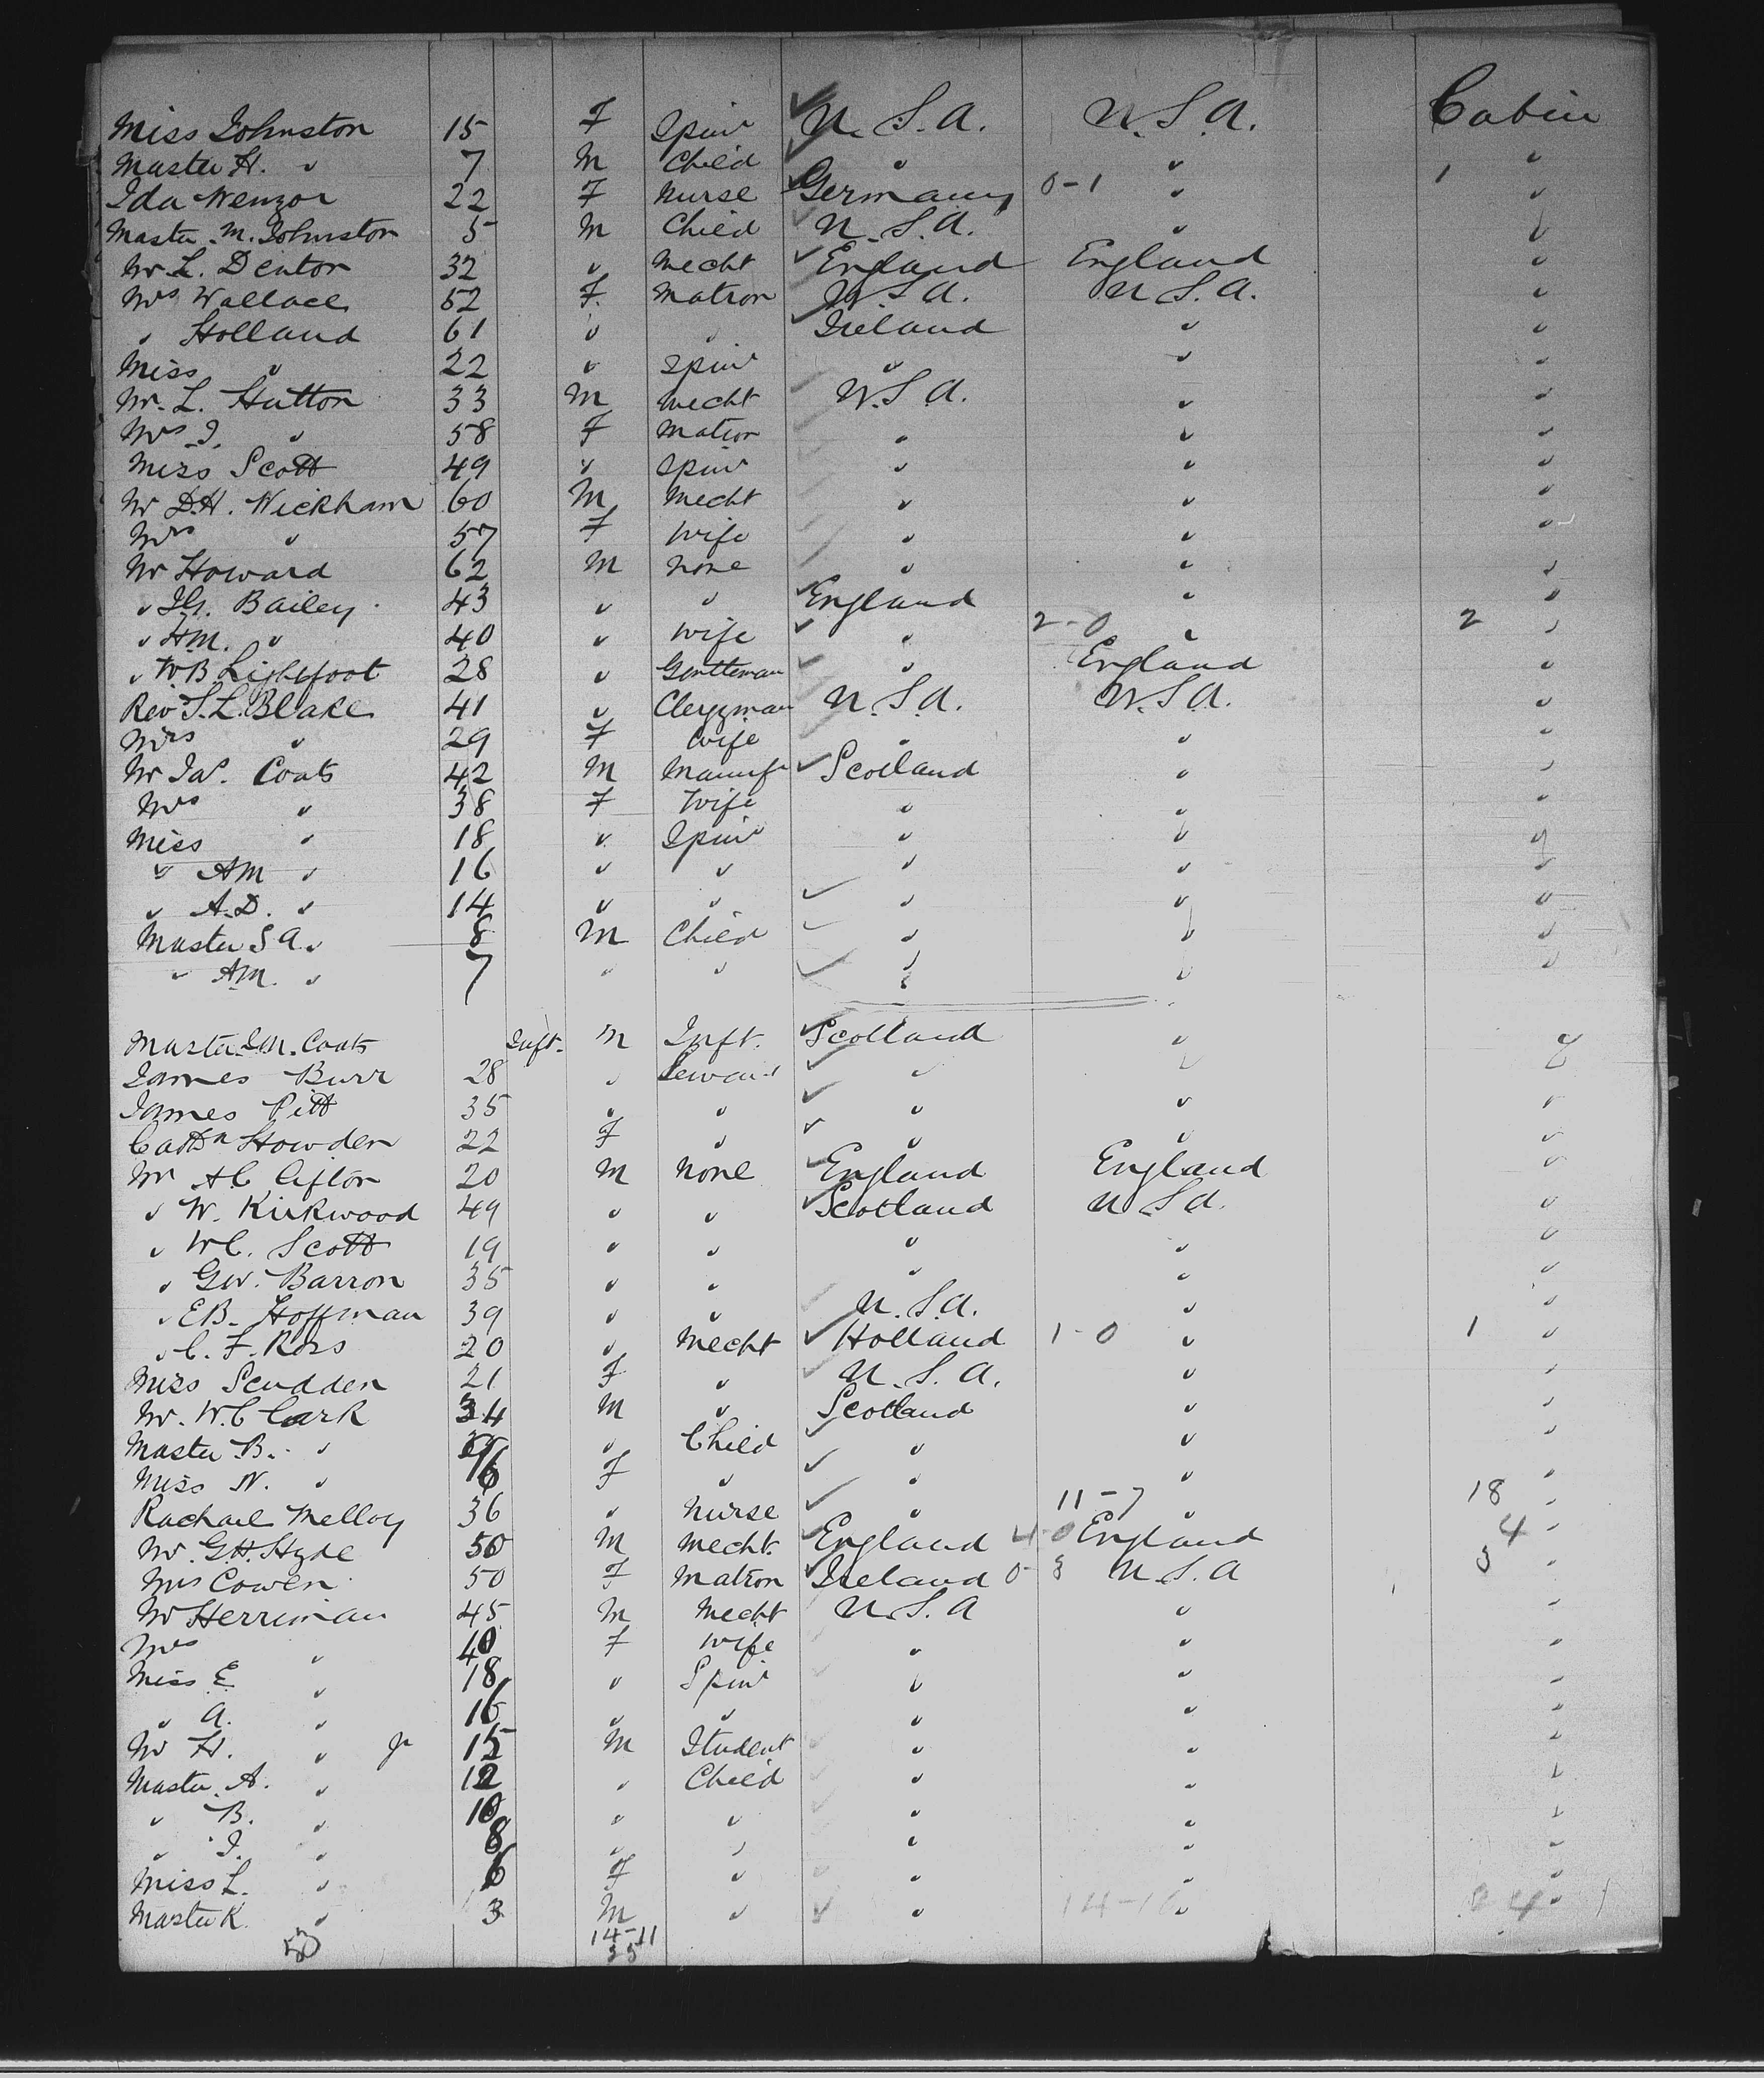 Miss Johnston 15 F Spinr U.S.A. U.S.A. Cabin
Master H. " 7 M Child " " "
Ida Wenzor 22 F Nurse Germany 0-1 " 1 "
Master M. Johnston 5 M Child U.S.A. " "
Mr L. Denton 32 " Mecht England England "
Mrs Wallace 52 F Matron U.S.A. U.S.A. "
" Holland 61 " " Ireland " "
Miss " 22 " Spinr " " "
Mr. L. Hutton 33 M Mecht U.S.A. " "
Mrs J. " 58 F Matron " " "
Miss Scott 49 " Spinr " " "
Mr D.H. Wickham 60 M Mecht " " "
Mrs " 57 F Wife " " "
Mr Howard 62 M None " " "
" J.G. Bailey 43 " " England " "
" H.M. " 40 " Wife " 2-0 " 2 "
" W B Lightfoot 28 " Gentleman " England "
Rev S.L. Blake 41 " Clergyman U.S.A. U.S.A. "
Mrs " 29 F Wife " " "
Mr Jas. Coats 42 M Manufr Scotland " "
Mrs " 38 F Wife " " "
Miss " 18 " Spinr " " "
" AM " 16 " " " " "
" A.D. " 14 " " " " "
Master S A. " 8 M Child " " "
" AM. " 7 " " " " "
Master J.M. Coats Inft. M Inft. Scotland " "
James Burr 28 " Servant " " "
James Pitt 35 " " " " "
Cathn Howden 22 F " " " "
Mr A C Clifton 20 M None England England "
" W. Kirkwood 49 " " Scotland U.S.A. "
" W C. Scott 19 " " " " "
" G.W. Barron 35 " " " " "
" E B. Hoffman 39 " " U.S.A. " "
" C. F. Ross 20 " Mecht Holland 1-0 " 1 "
Miss Scudder 21 F " U.S.A. " "
Mr. W. C Clark 34 M " Scotland " "
Master B. " 9 " Child " " "
Miss N. " 6 F " " " "
Rachael Melloy 36 " Nurse " 11-7 " 18 "
Mr. G.H. Hyde 50 M Mecht. England 4-0 England 4 "
Mrs Cowen 50 F Matron Ireland 0-3 U.S.A 3 "
Mr Herriman 45 M Mecht U.S.A " "
Mrs " 40 F Wife " " "
Miss E " 18 " Spinr " " "
" A. " 16 " " " " "
Mr H. " Jr 15 M Student " " "
Master A. " 12 " Child " " "
" B. " 10 " " " " "
" J. " 8 " " " " "
Miss L. " 6 F " " " "
Master K. " 3 M " " 14-10 " 24 "
53 14-11